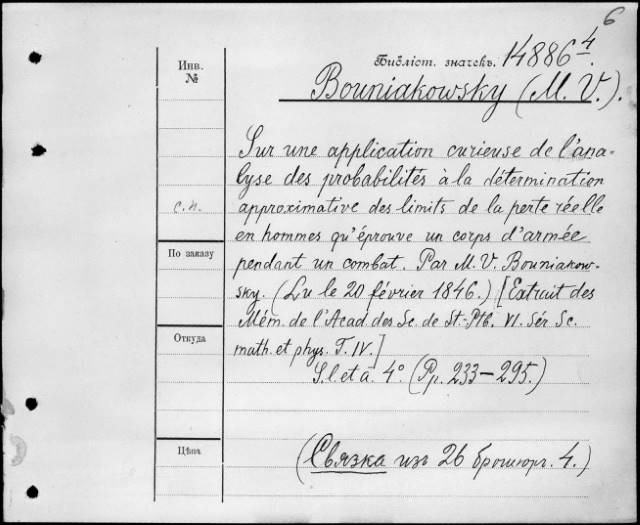 6
Инв.
№
Библіот. значекъ. 14886 4.
Bouniakowsky (M. V.).
Sur une application curieuse de l'ana-
lyse des probabilités à la détermination
с.н. approximative des limits de la perte réelle
en hommes qu'éprouve un corps d'armée
По заказу
pendant un combat. Par M. V. Bouniakow-
sky. (Lu le 20 février 1846.) [Extrait des
Mém. de l'Acad. des Sc. de St.-Ptb. VI. Sér. Sc.
Откуда
math. et phys. T. IV.]
S. l. et a. 4º. (Pp. 233–295.)
Цѣна
(Связка изъ 26 брошюръ. 4.)